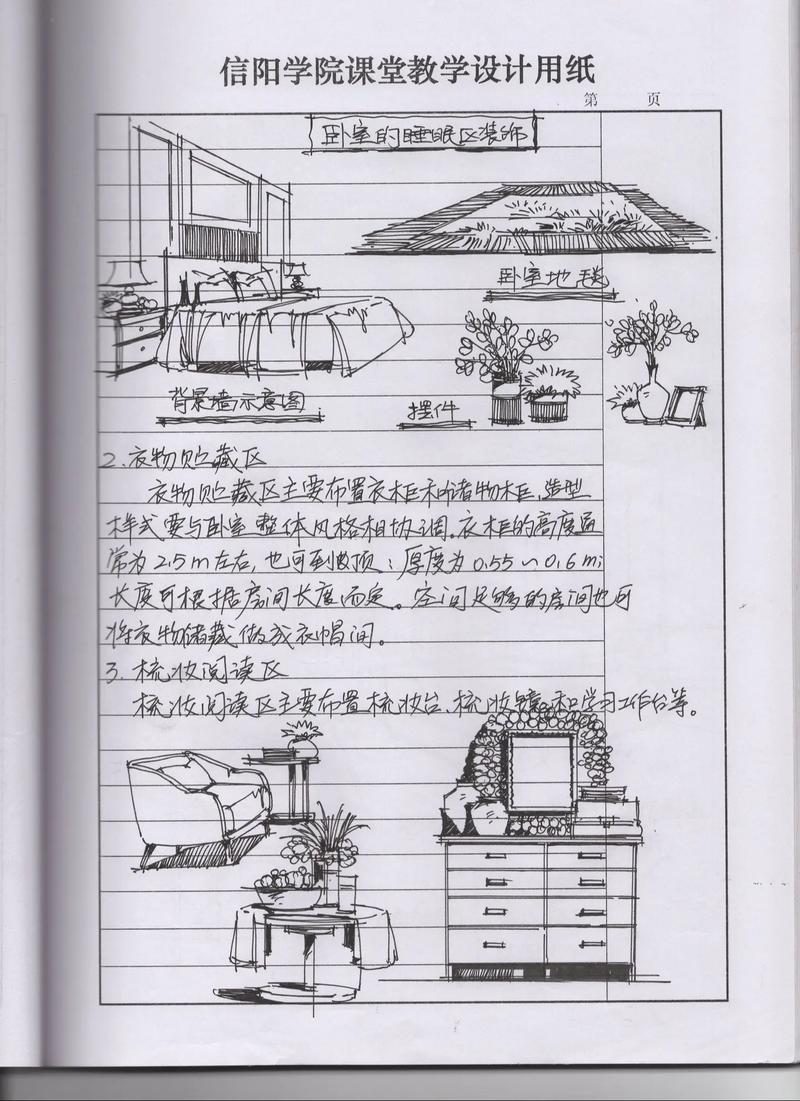 信阳学院课堂教学设计用纸
第 页
卧室的睡眠区装饰
卧室地毯
背景墙示意图
摆件
2.衣物贮藏区
衣物贮藏区主要布置衣柜和储物柜,造型
样式要与卧室整体风格相协调。衣柜的高度通
常为2.5m左右,也可到顶;厚度为0.55~0.6m;
长度可根据房间长度而定。空间足够的房间也可
将衣物储藏做成衣帽间。
3.梳妆阅读区
梳妆阅读区主要布置梳妆台、梳妆镜和学习工作台等。